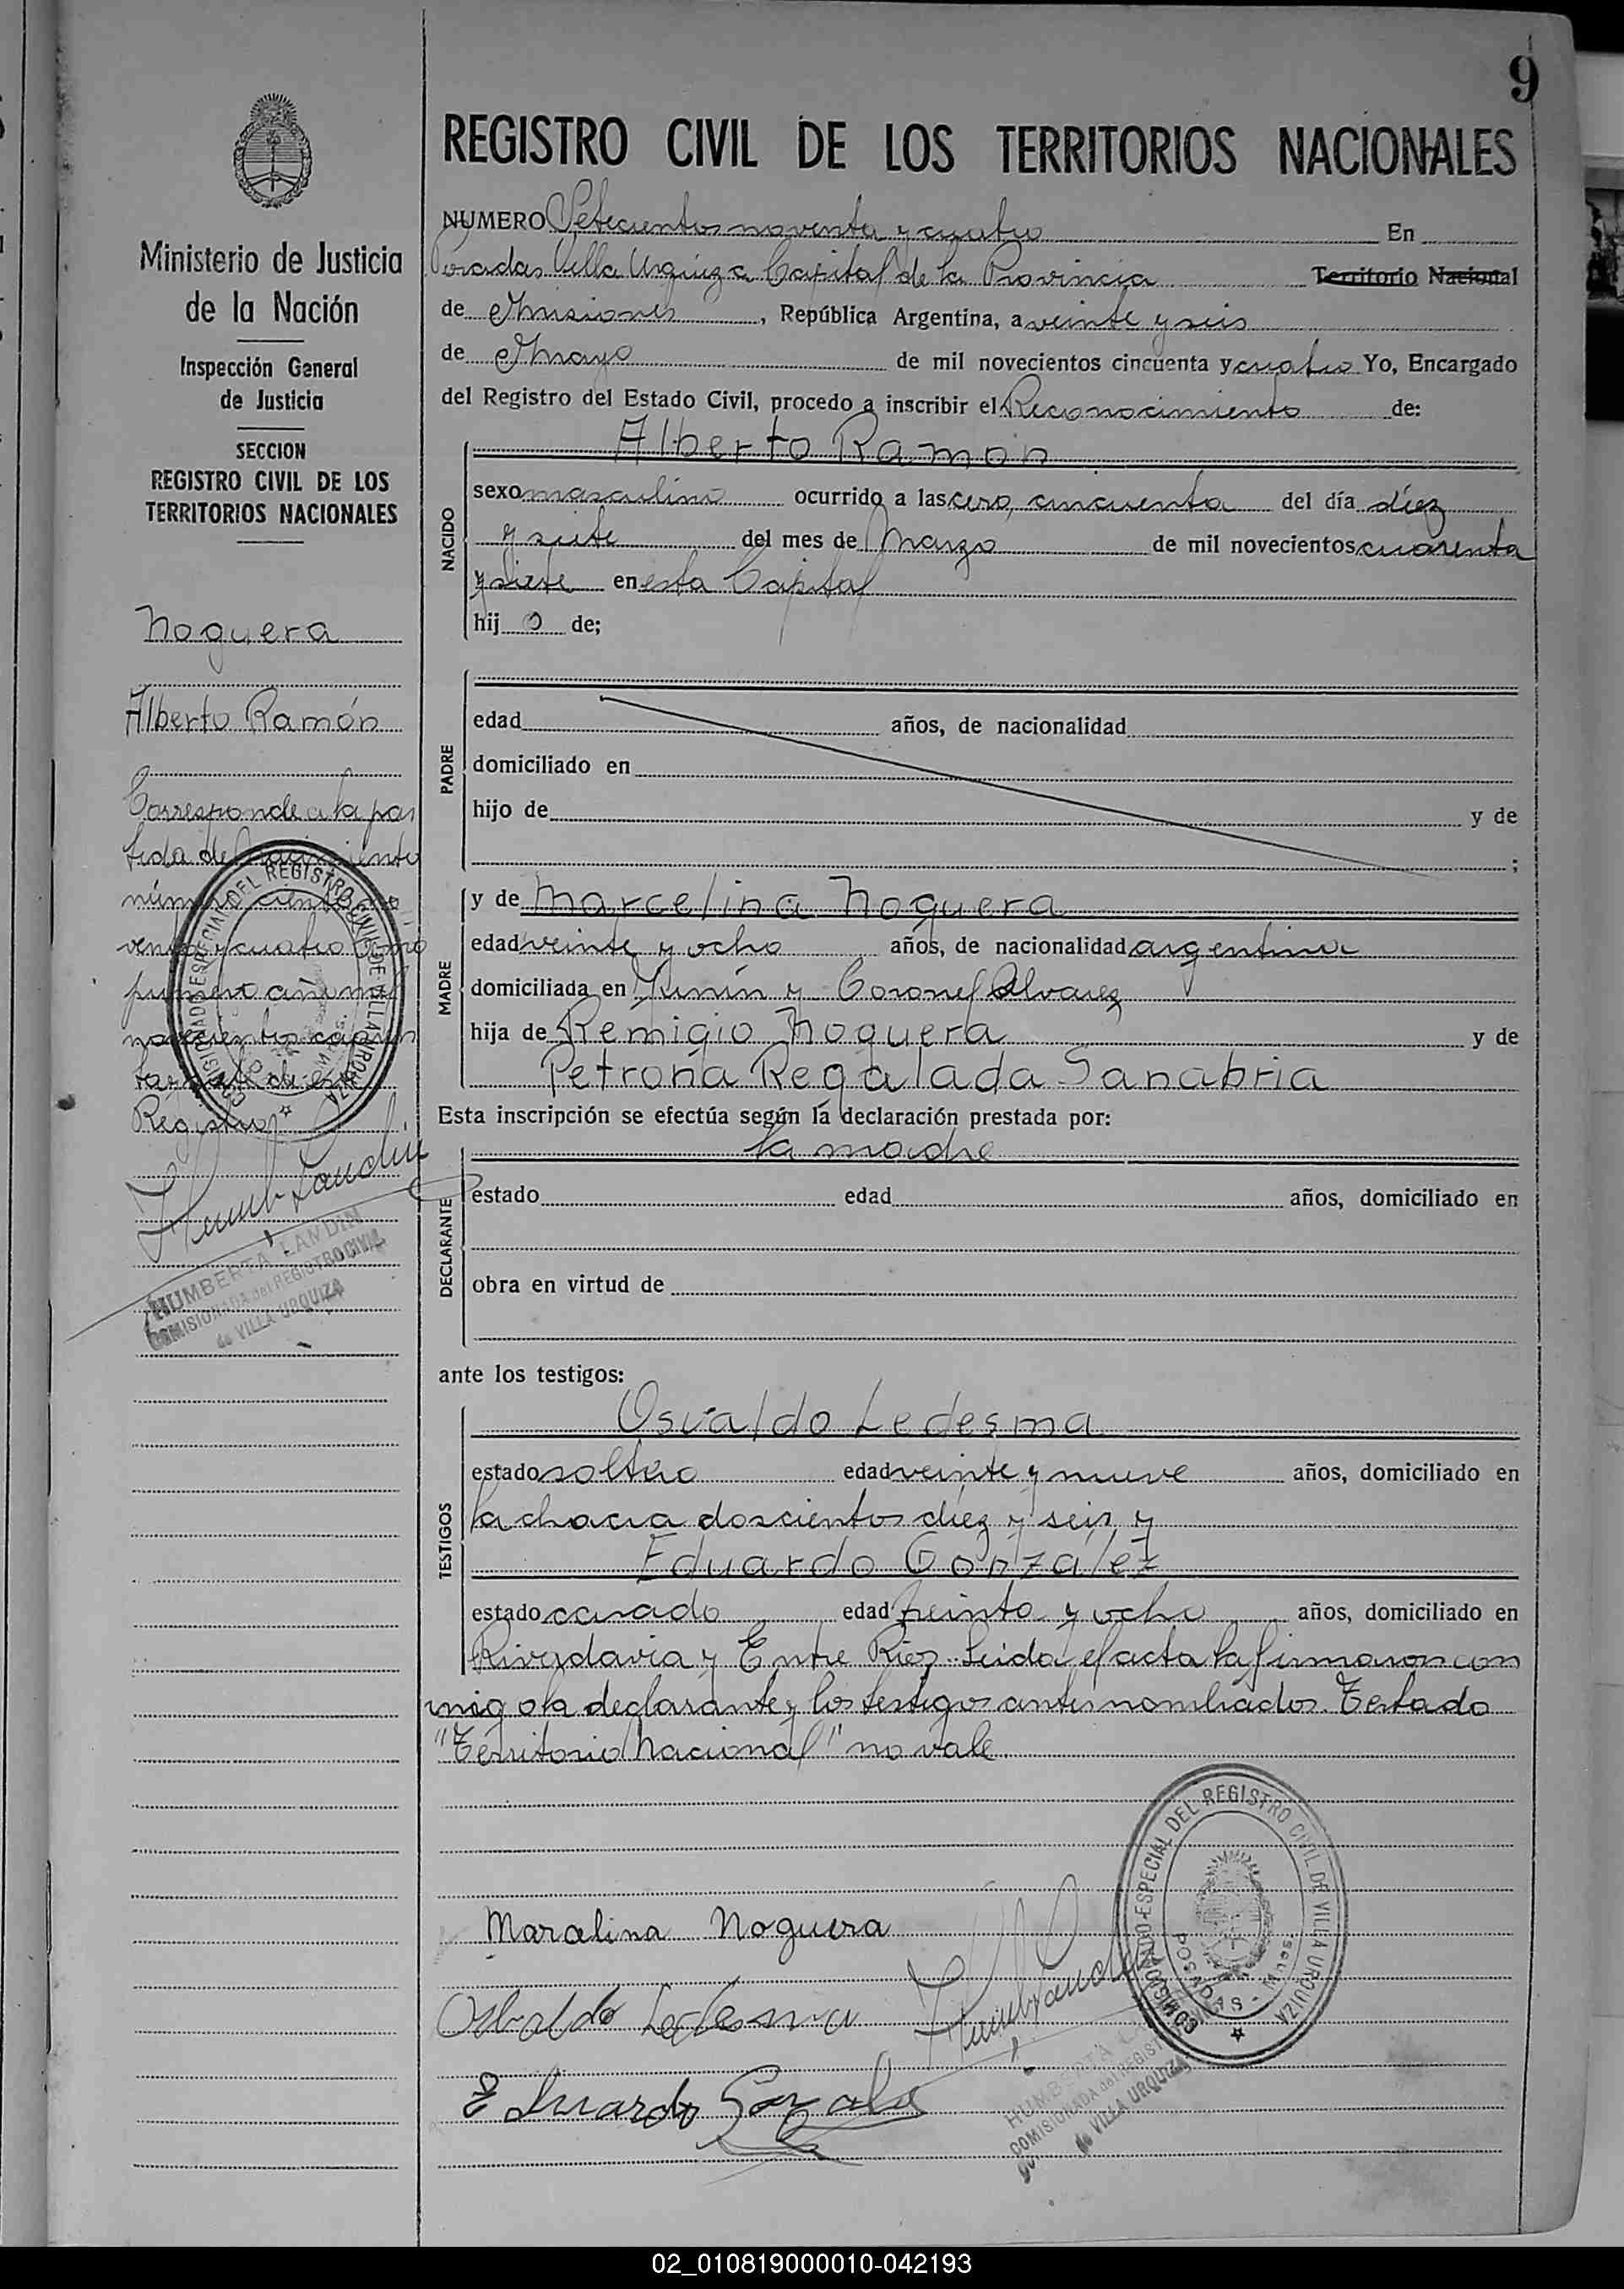 9
REGISTRO CIVIL DE LOS TERRITORIOS NACIONALES
Ministerio de Justicia
de la Nación
Inspección General
de Justicia
SECCION
REGISTRO CIVIL DE LOS
TERRITORIOS NACIONALES
Noguera
Alberto Ramón
Corresponde a la par
tida de nacimiento
número ciento no
venta y cuatro tomo
primero año mil
novecientos cuaren
Registro
HUMBERTA LANDIN
COMISIONADA del REGISTRO CIVIL
de VILLA URQUIZA
NUMERO Setecientos noventa y cuatro En
Posadas Villa Urquiza Capital de la Provincia Territorio Nacional
de Misiones, República Argentina, a veinte y seis
de Mayo de mil novecientos cincuenta y cuatro Yo, Encargado
del Registro del Estado Civil, procedo a inscribir el Reconocimiento de:
NACIDO
Alberto Ramón
sexo masculino ocurrido a las cero, cincuenta del día diez
y siete del mes de Marzo de mil novecientos cuarenta
y siete en esta Capital
hij o de;
PADRE
edad años, de nacionalidad
domiciliado en
hijo de y de
;
MADRE
y de Marcelina Noguera
edad veinte y ocho años, de nacionalidad argentina
domiciliada en Junín y Coronel Alvarez
hija de Remigio Noguera y de
Petrona Regalada Sanabria
Esta inscripción se efectúa según la declaración prestada por:
DECLARANTE
la madre
estado edad años, domiciliado en
obra en virtud de
ante los testigos:
TESTIGOS
Osvaldo Ledesma
estado soltero edad veinte y nueve años, domiciliado en
la chacra doscientos diez y seis y
Eduardo González
estado casado edad treinta y ocho años, domiciliado en
Rivadavia y Entre Ríos. Leida el acta la firmaron con
migo la declarante y los testigos antes nombrados. Testado
"Territorio Nacional" no vale.
Marcelina Noguera
Osbaldo Ledesma
Eduardo Gonzalez
HUMBERTA
COMISIONADA del REGIST
de VILLA URQUIZA
COMISIONADO ESPECIAL DEL REGISTRO CIVIL DE VILLA URQUIZA
POSADAS - Mnes.
02_010819000010-042193